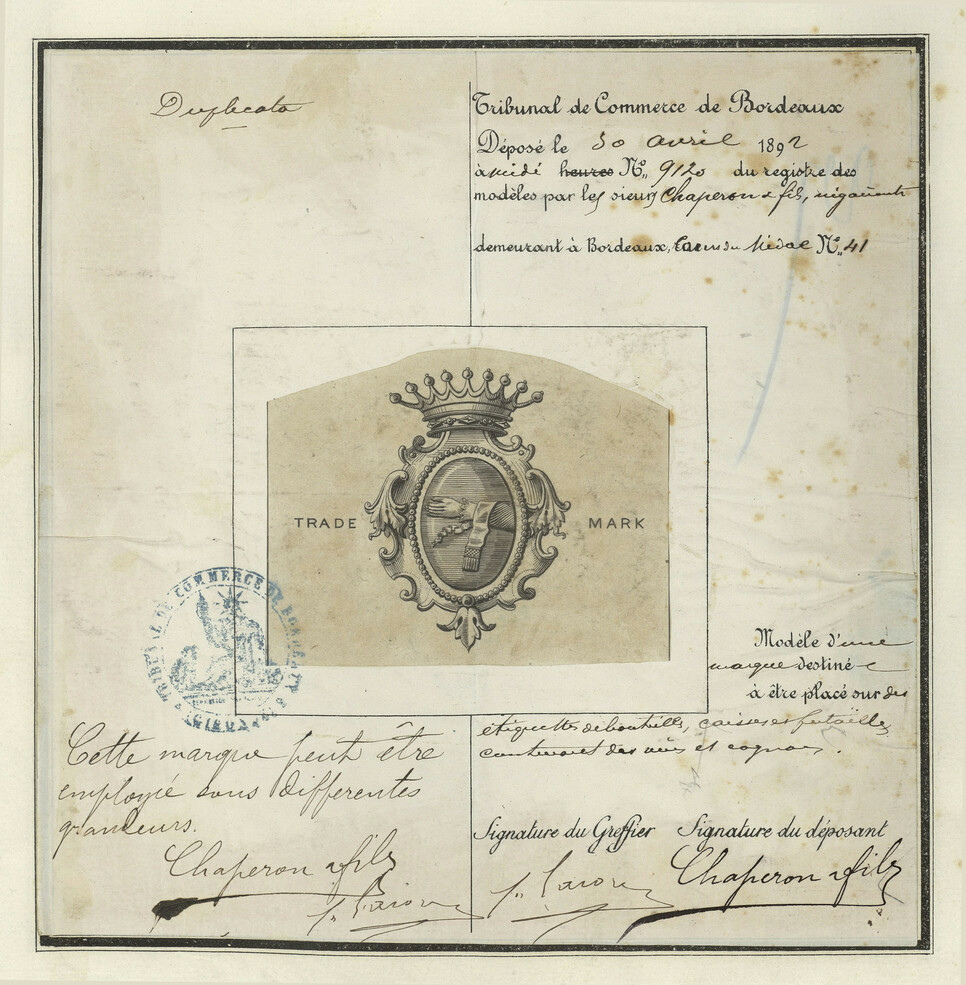 Duplicata
Tribunal de Commerce de Bordeaux
Déposé le 30 avril 1892
à midi heures No. 9120 du registre des
modèles par les sieurs Chaperon & fils, négociants
demeurant à Bordeaux, Cours du Médoc No. 41
TRADE MARK
TRIBUNAL DE COMMERCE DE BORDEAUX
GIRONDE
Modèle d'une
marque destinée
à être placé sur des
étiquettes de bouteilles, caisses et futailles
contenant des vins et cognacs.
Cette marque peut être
employé sous differentes
grandeurs.
Chaperon & fils
Signature du Greffier Signature du déposant
Chaperon & fils